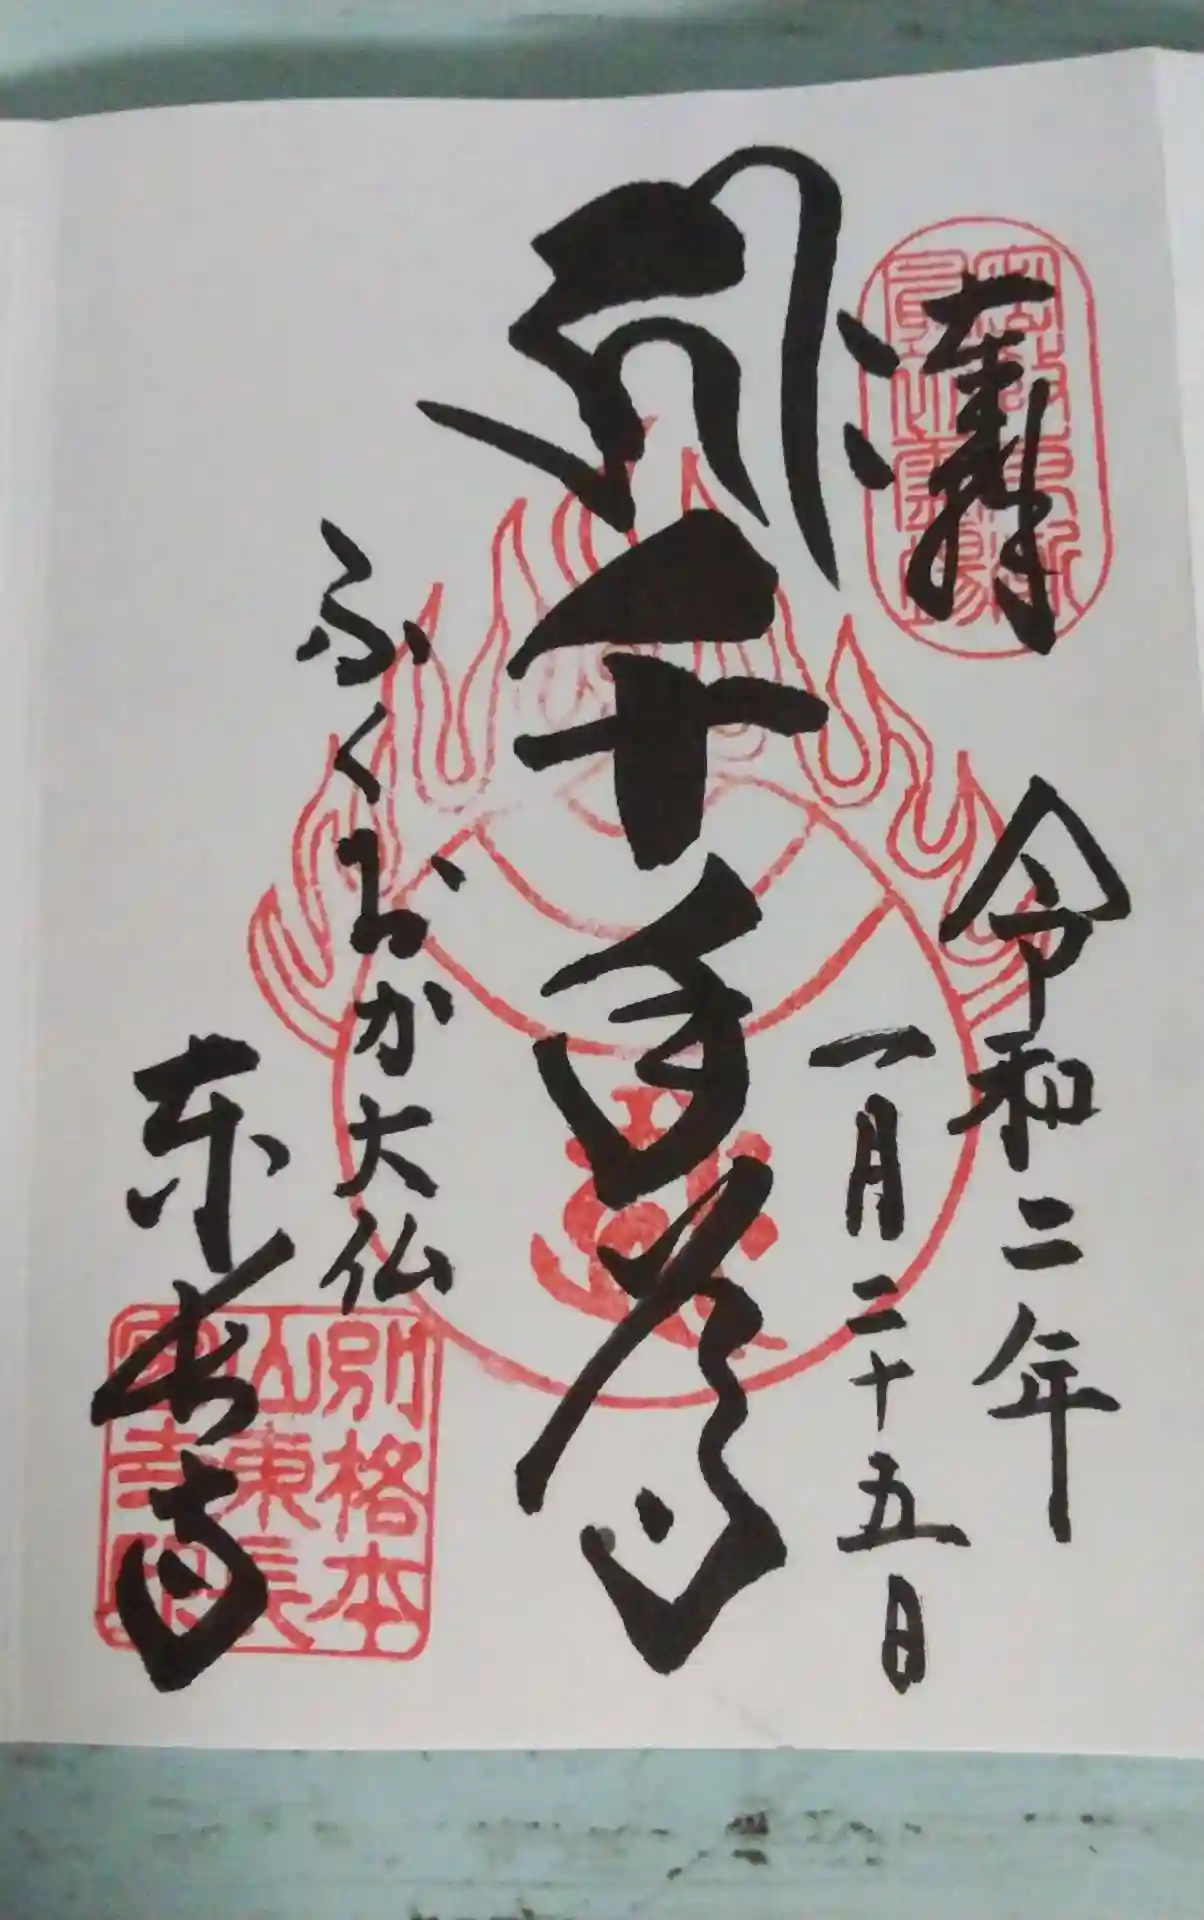 奉拝
令和二年
一月二十五日
ह्रीः
千手尊
ふくおか大仏
東長寺
別格本
山東長